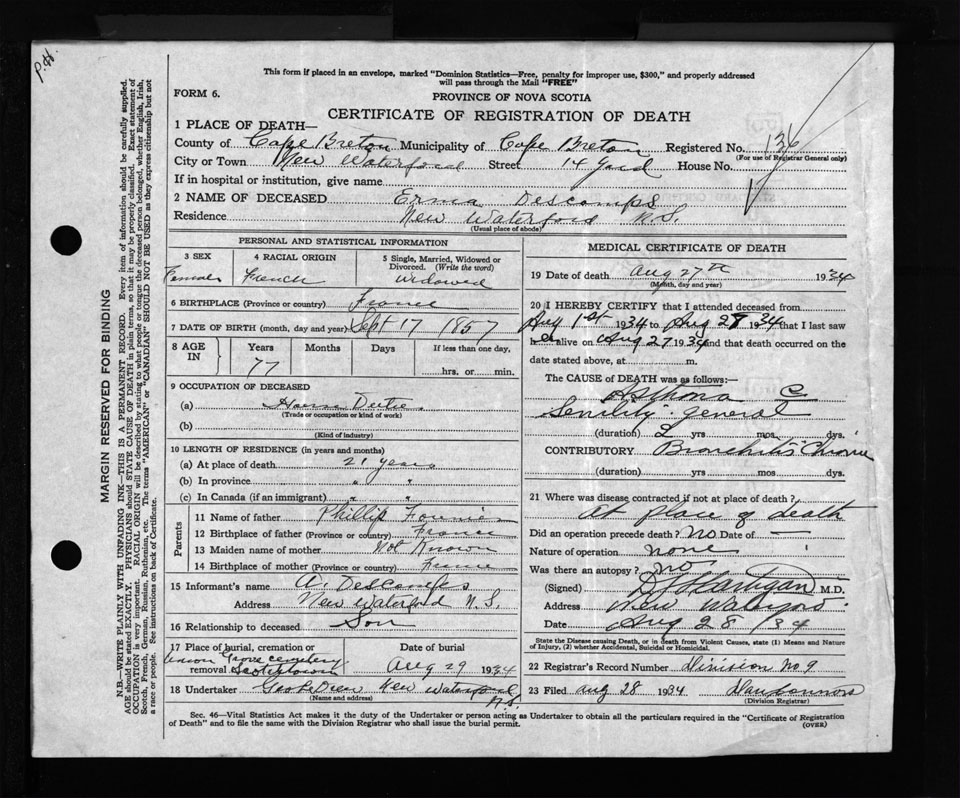 P.H.
This form if placed in an envelope, marked "Dominion Statistics—Free, penalty for improper use, $300," and properly addressed
will pass through the Mail "FREE"
FORM 6.
PROVINCE OF NOVA SCOTIA
CERTIFICATE OF REGISTRATION OF DEATH
1 PLACE OF DEATH—
County of Cape Breton Municipality of Cape Breton Registered No. 136
(For use of Registrar General only)
City or Town New Waterford Street 14 Yard House No.
If in hospital or institution, give name
2 NAME OF DECEASED Erma Descomps
Residence New Waterford N.S.
(Usual place of abode)
PERSONAL AND STATISTICAL INFORMATION
3 SEX
Female
4 RACIAL ORIGIN
French
5 Single, Married, Widowed or
Divorced. (Write the word)
Widowed
6 BIRTHPLACE (Province or country) France
7 DATE OF BIRTH (month, day and year) Sept 17 1857
8 AGE IN
Years Months Days If less than one day,
77 hrs. or min.
9 OCCUPATION OF DECEASED
(a) House
(Trade or occupation or kind of work)
(b)
(Kind of industry)
10 LENGTH OF RESIDENCE (in years and months)
(a) At place of death 21 years
(b) In province " "
(c) In Canada (if an immigrant) " "
Parents
11 Name of father Phillip
12 Birthplace of father (Province or country) France
13 Maiden name of mother Not Known
14 Birthplace of mother (Province or country) France
15 Informant's name A. Descomps
Address New Waterford N.S.
16 Relationship to deceased Son
17 Place of burial, cremation or
removal Grove cemetery
Scotchtown
Aug 29 1934
18 Undertaker New Waterford
N.S.
(Name and address)
MEDICAL CERTIFICATE OF DEATH
19 Date of death Aug 27th 1934
(Month, day and year)
20 I HEREBY CERTIFY that I attended deceased from
Aug 1st 1934 to Aug 28 1934 that I last saw
her alive on Aug 27 1934 and that death occurred on the
date stated above, at m.
The CAUSE of DEATH was as follows:
Asthma C
Senility general
(duration) 2 yrs mos. dys.
CONTRIBUTORY Bronchitis Chronic
(duration) yrs mos. dys.
21 Where was disease contracted if not at place of death?
At place of death
Did an operation precede death? No Date of —
Nature of operation none
Was there an autopsy? no
(Signed) M.D.
Address New Waterford
Date Aug 28 / 34
State the Disease causing Death, or in death from Violent Causes, state (1) Means and
Nature of Injury, (2) whether Accidental, Suicidal or Homicidal.
22 Registrar's Record Number Division No 9
23 Filed Aug 28 1934
(Division Registrar)
Sec. 46—Vital Statistics Act makes it the duty of the Undertaker or person acting as Undertaker to obtain all the particulars required in the "Certificate of Registration
of Death" and to file the same with the Division Registrar who shall issue the burial permit.
(OVER)
MARGIN RESERVED FOR BINDING
N.B.—WRITE PLAINLY WITH UNFADING INK—THIS IS A PERMANENT RECORD. Every item of information should be carefully supplied.
AGE should be stated EXACTLY. PHYSICIANS should STATE CAUSE OF DEATH in plain terms, so that it may be properly classified. Exact statement of
OCCUPATION is very important. RACIAL ORIGIN will be described by stating to what people or tongue the deceased person belonged, whether English, Irish,
Scotch, French, German, Russian, Ruthenian, etc. The terms "AMERICAN" or "CANADIAN" SHOULD NOT BE USED as they express citizenship but not
a race or people. See instructions on back of Certificate.